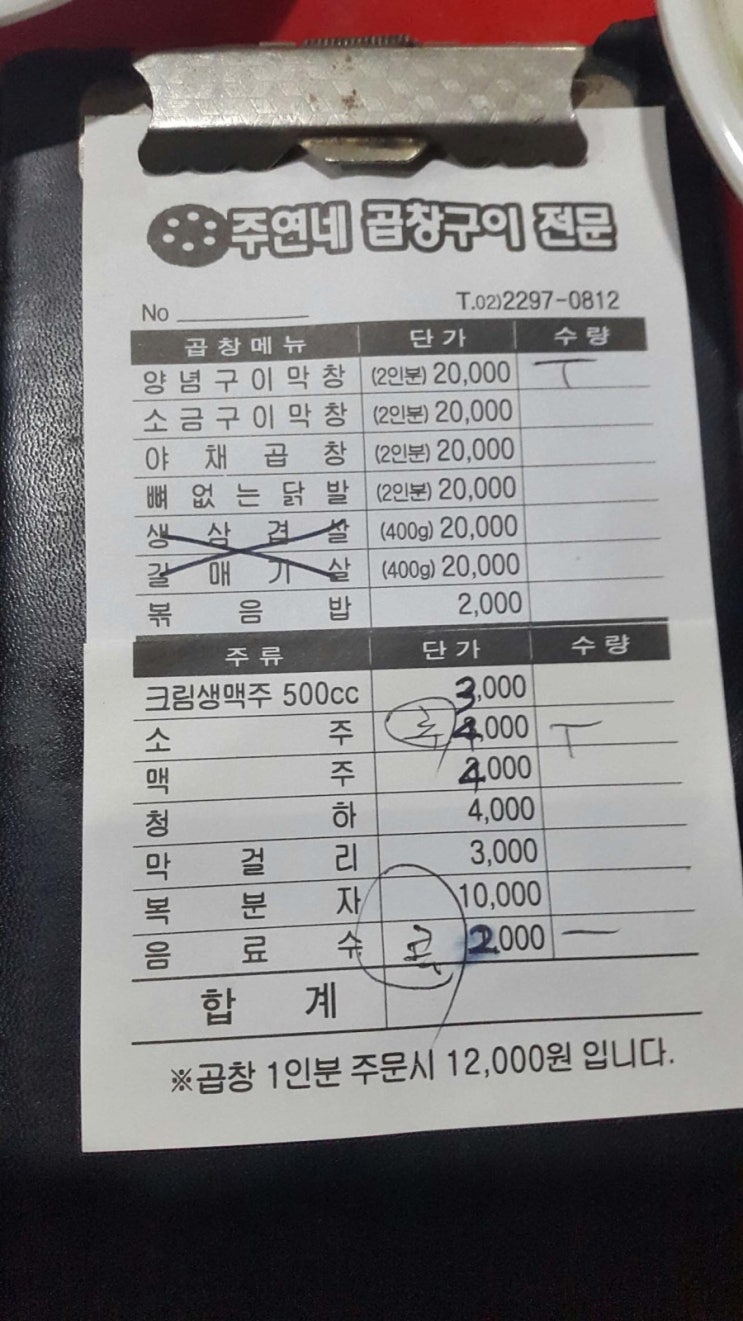 주연네 곱창구이 전문
No
T.02)2297-0812
곱창메뉴 단가 수량
양념구이막창 (2인분) 20,000 ㅜ
소금구이막창 (2인분) 20,000
야채곱창 (2인분) 20,000
뼈없는닭발 (2인분) 20,000
생삼겹살 (400g) 20,000
갈매기살 (400g) 20,000
볶음밥 2,000
주류 단가 수량
크림생맥주 500cc 3,000
소주 4,000 ㅜ
맥주 4,000
청하 4,000
막걸리 3,000
복분자 10,000
음료수 2,000 一
합계
※곱창 1인분 주문시 12,000원 입니다.